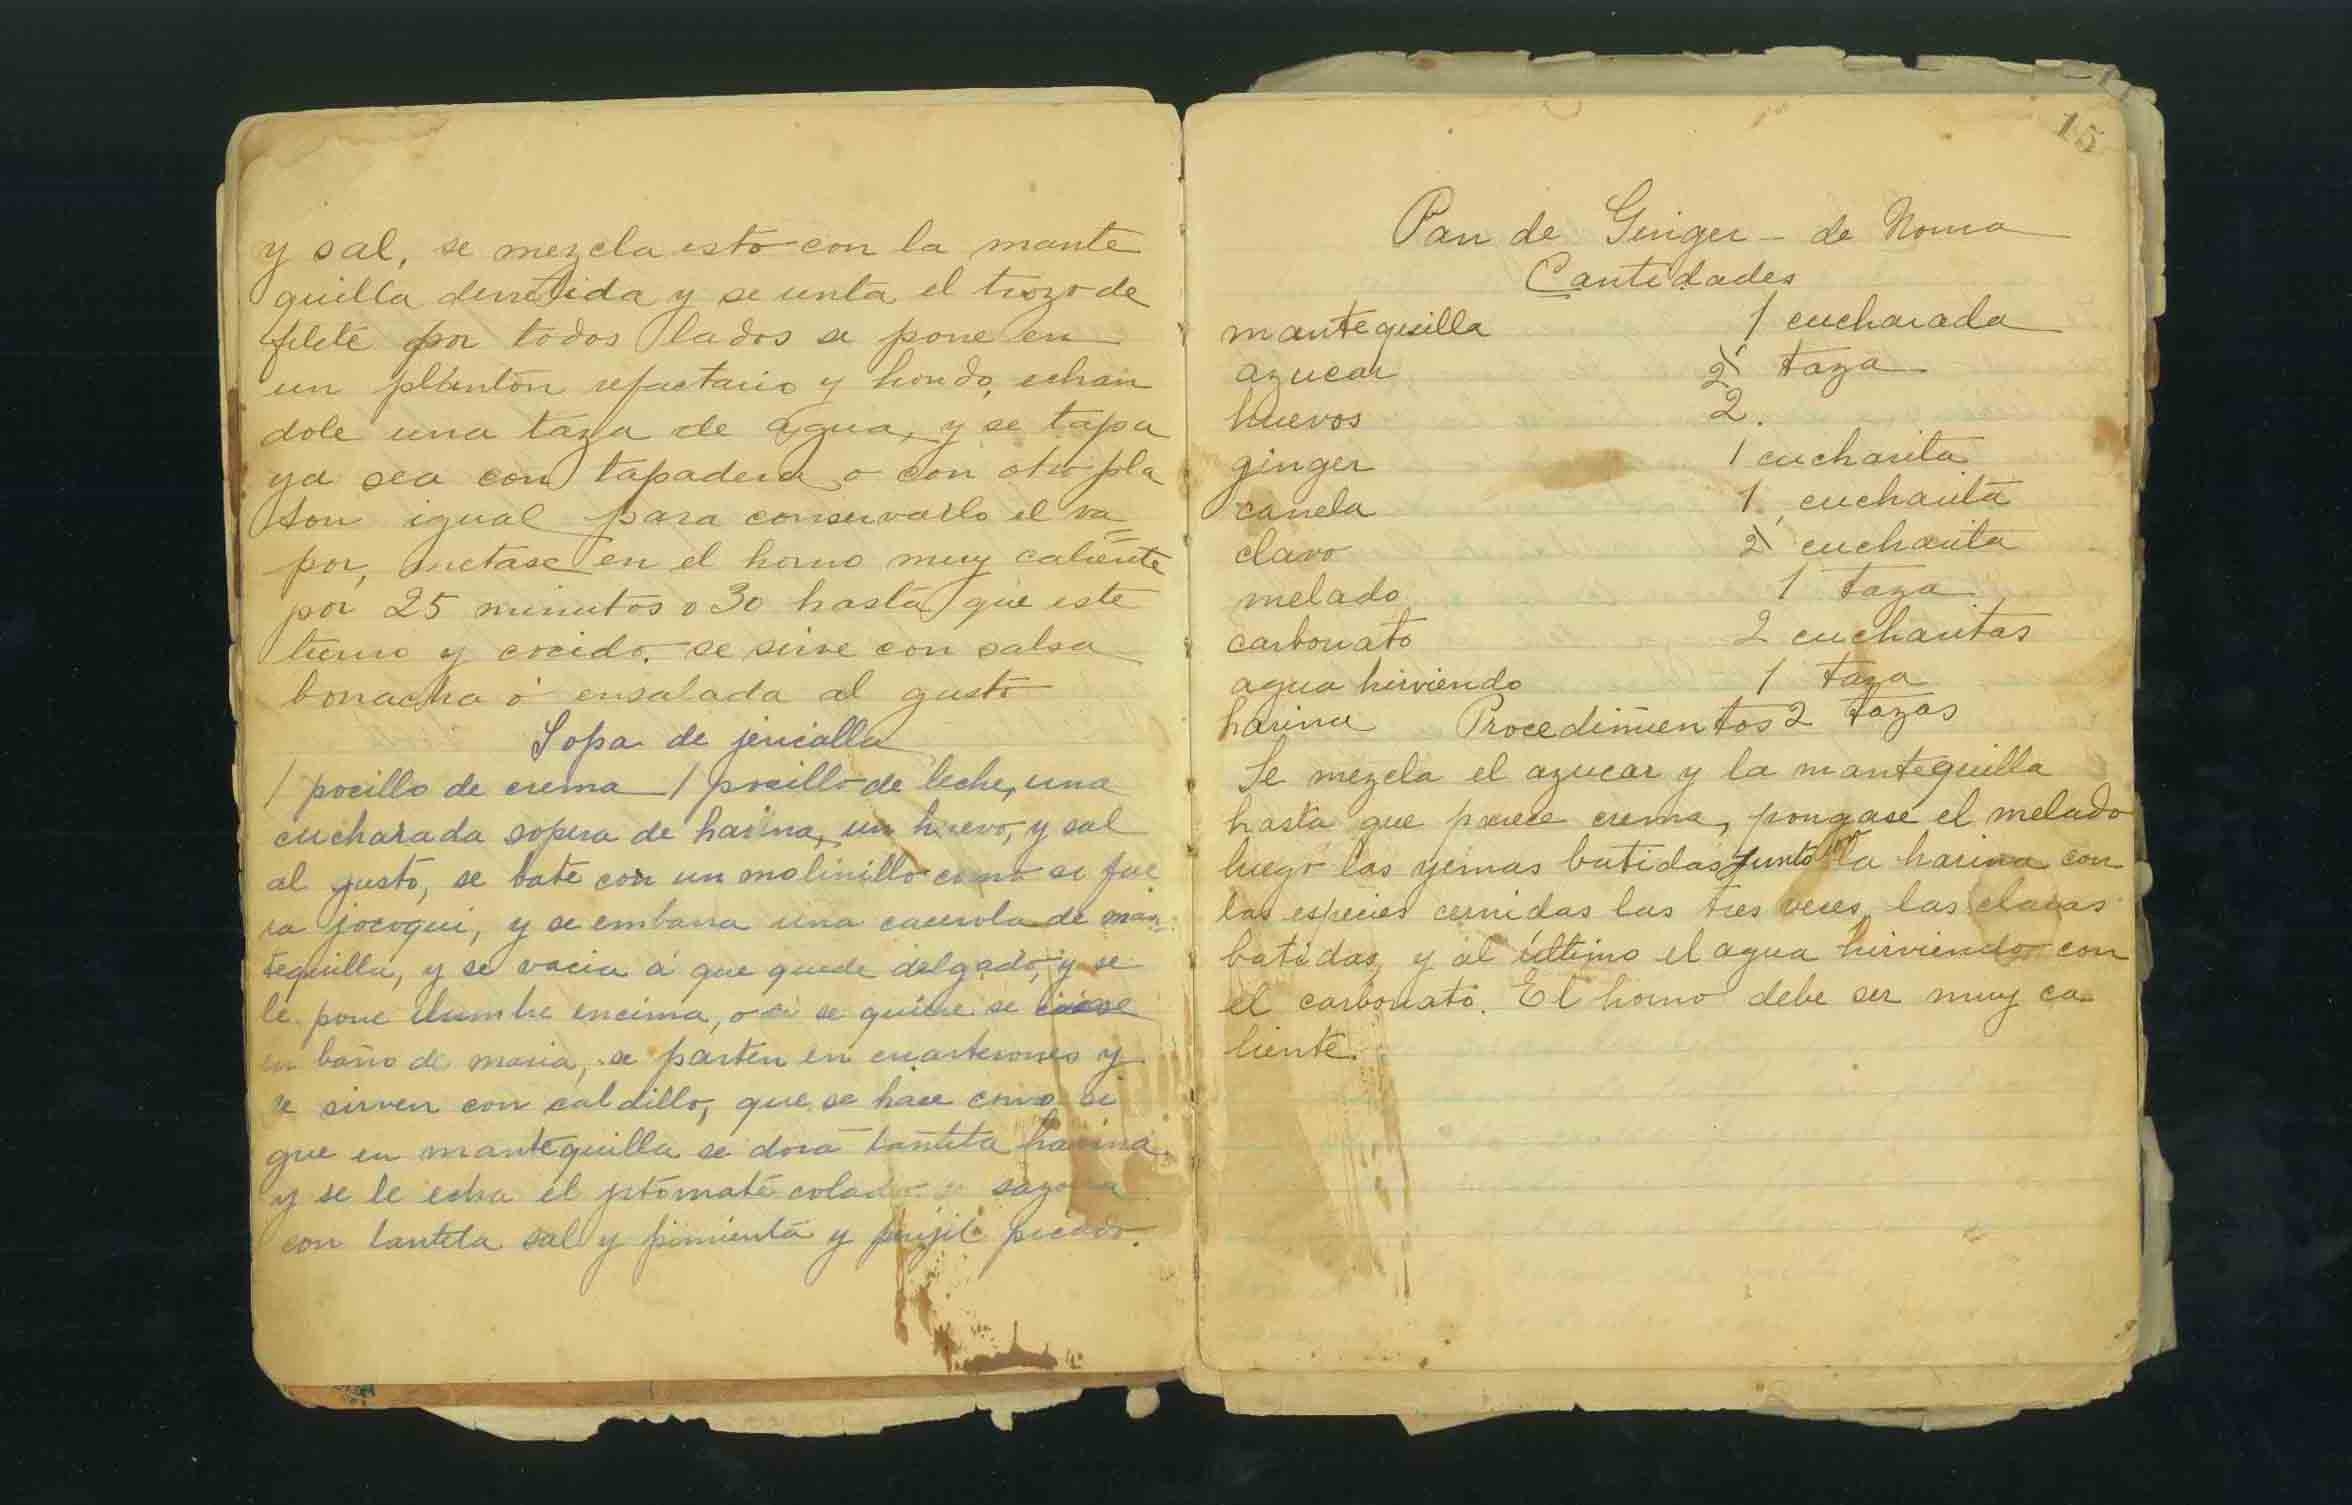 y sal, se mezcla esto con la mante
quilla derretida y se unta el trozo de
filete por todos lados se pone en
un platon refactario y hondo, echan
dole una taza de agua, y se tapa
ya sea con tapadera o con otro pla
ton igual para conservarlo el va=
por, metase en el horno muy caliente
por 25 minutos o 30 hasta que este
tierno y cocido. se sirve con salsa
borracha ó ensalada al gusto
Sopa de jericalla
1 pocillo de crema 1 pocillo de leche, una
cucharada sopera de harina, un huevo, y sal
al gusto, se bate con un molinillo como si fue
ra jocoqui, y se embarra una cacerola de man=
tequilla, y se vacia á que quede delgado, y se
le pone lumbre encima, o si se quiere se cuese
en baño de maria, se parten en cuarterones y
se sirven con caldillo, que se hace como si
que en mantequilla se dora tantita harina
y se le echa el jitomate colado y sazona
con tantita sal y pimienta y perejil picado.
15
Pan de Ginger - de Norna
Cantidades
mantequilla 1 cucharada
azucar 1/2 taza
huevos 2.
ginger 1 cucharita
canela 1 cucharita
clavo 1/2 cucharita
melado 1 taza
carbonato 2 cucharitas
agua hirviendo 1 taza
harina Procedimientos 2 tazas
Se mezcla el azucar y la mantequilla
hasta que parece crema, pongase el melado
luego las yemas batidas junto con la harina con
las especies cernidas las tres veces, las claras
batidas, y al último el agua hirviendo con
el carbonato. El horno debe ser muy ca-
liente.